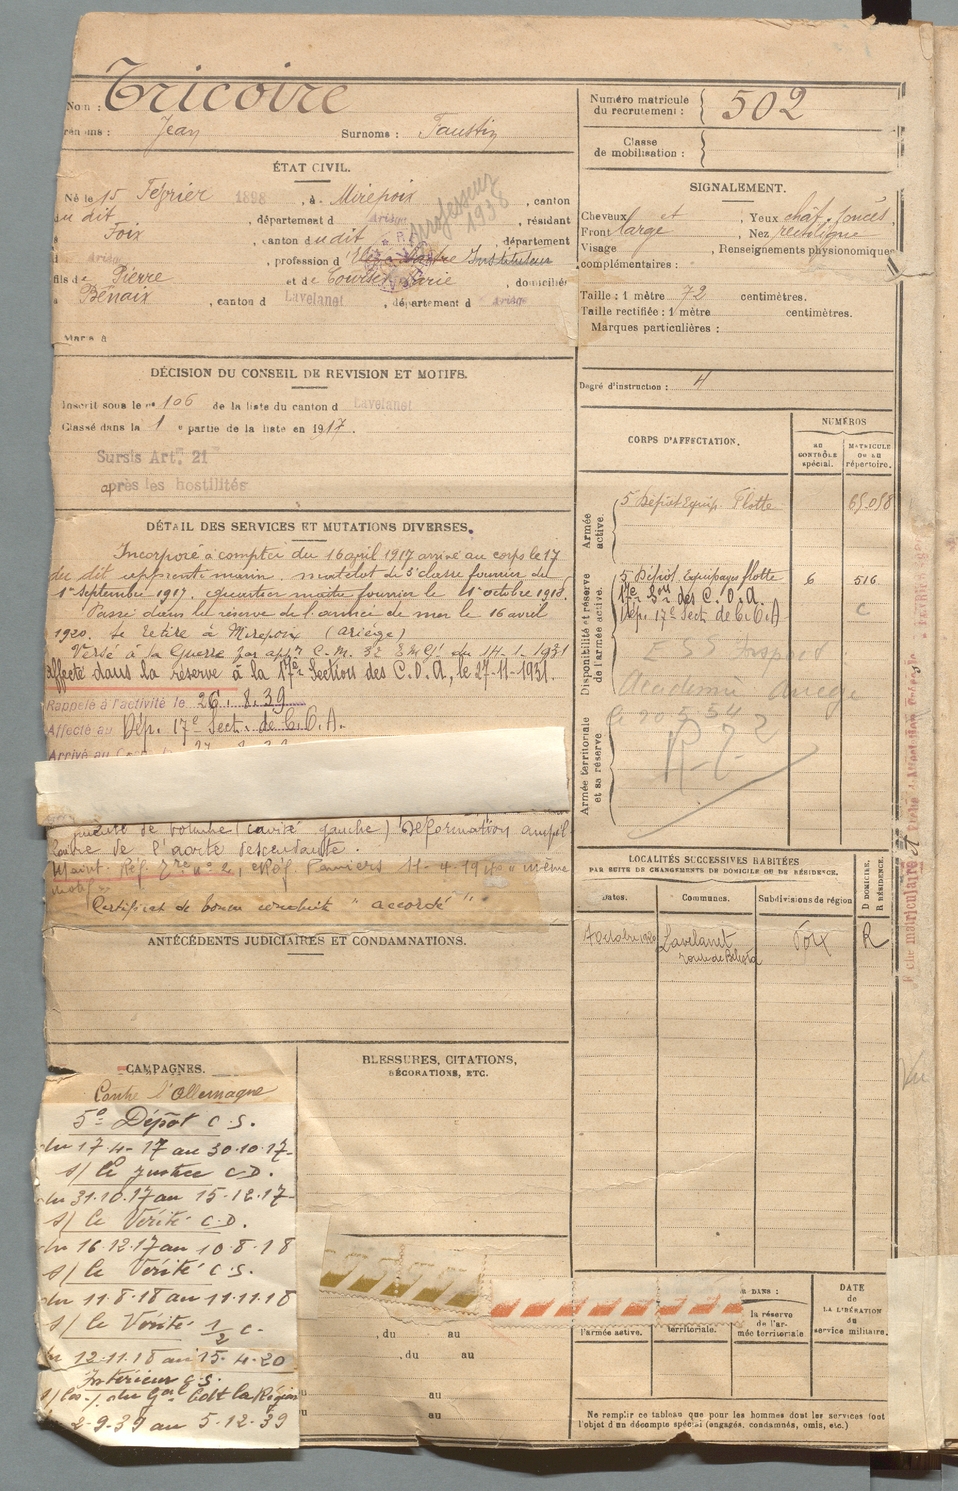 Nom : Tricoire
Jean Surnoms : Faustin
ÉTAT CIVIL.
Né le 15 Février 1898, à Mirepoix, canton
du dit, département d Ariège, résidant
à Foix, canton dudit, département
d Ariège, profession d' Instituteur
professeur 1938
fils de Pierre et de Marie, domiciliés
à Bénaix, canton d Lavelanet, département d Ariège
Marié à
DÉCISION DU CONSEIL DE REVISION ET MOTIFS.
Inscrit sous le n° 106 de la liste du canton d Lavelanet
Classé dans la 1e partie de la liste en 1917.
Sursis Art. 21
après les hostilités
DÉTAIL DES SERVICES ET MUTATIONS DIVERSES.
Incorporé à compter du 16 avril 1917 arrivé au corps le 17
du dit apprenti-marin, matelot de 3e classe fourrier du
1er Septembre 1917, quartier maître fourrier le 11 octobre 1918.
Passé dans la réserve de l'armée de mer le 16 avril
1920. Se retire à Mirepoix (Ariège)
Versé à la Guerre par du 14-1-1931
affecté dans la réserve à la 17e Section des C.O.A, le 27-11-1931.
Rappelé à l'activité le 26.8.39
Affecté au Dép. 17e Sect. de C.O.A.
Arrivé au
(cavité gauche) Déformation
de l'aorte descendante.
Maint. Réf. n° 2, Réf. Pamiers 11-4-1940 même
motif
Certificat de bonne conduite "accordé"
ANTÉCÉDENTS JUDICIAIRES ET CONDAMNATIONS.
CAMPAGNES.
Contre l'Allemagne
5e Dépôt C.S.
du 17-4-17 au 30-10-17
s/ le Justice C.D.
du 31.10.17 au 15-12-17
s/ le Vérité C.D.
du 16.12.17 au 10-8-18
s/ le Vérité C.S.
du 11-8-18 au 11-11-18
s/ le Vérité 1/2 C.
du 12-11-18 au 15-4-20
Intérieur C.S.
la Région
2-9-39 au 5-12-39
BLESSURES, CITATIONS,
DÉCORATIONS, ETC.
, du au
, du au
au
au
Numéro matricule
du recrutement : 502
Classe
de mobilisation :
SIGNALEMENT.
Cheveux et, Yeux chât. foncés
Front large, Nez rectiligne
Visage, Renseignements physionomiques
complémentaires :
Taille : 1 mètre 72 centimètres.
Taille rectifiée : 1 mètre centimètres.
Marques particulières :
Degré d'instruction : 4
CORPS D'AFFECTATION.
NUMÉROS
AU CONTRÔLE spécial.
MATRICULE OU AU répertoire.
Armée active.
5 Dépôt Equip. Flotte 65.058
Disponibilité et réserve de l'armée active.
5 Dépôt. Equipages flotte 6 516
17e Son des C.O.A.
Dép. 17e Sect. de C.O.A C
Académie Ariège
Le 20 5 54
R-72
Armée territoriale et sa réserve
LOCALITÉS SUCCESSIVES HABITÉES
PAR SUITE DE CHANGEMENTS DE DOMICILE OU DE RÉSIDENCE.
Dates.
Communes.
Subdivisions de région
D. DOMICILE,
R. RÉSIDENCE.
Lavelanet Foix R
DANS :
l'armée active.
territoriale.
la réserve
de l'ar-
mée territoriale
DATE
de
LA LIBÉRATION
du
service militaire.
Ne remplir ce tableau que pour les hommes dont les services font
l'objet d'un décompte spécial (engagés, condamnés, omis, etc.)
Vu